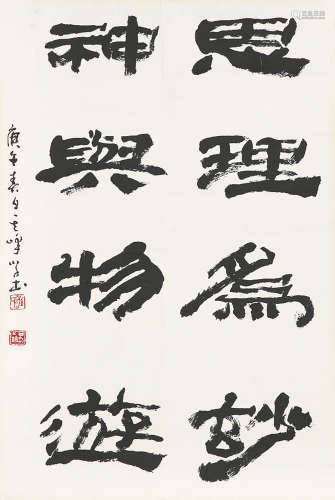 思理為玅
神與物遊
庚午春月